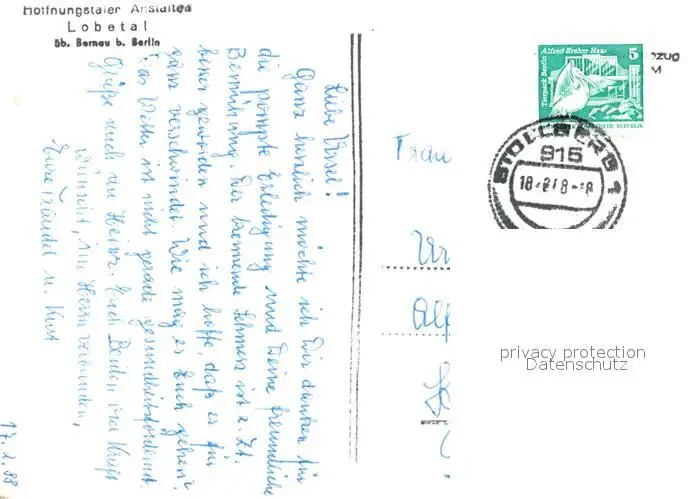 Hoffnungstaler Anstalten
Lobetal
üb. Bernau b. Berlin
Liebe Ursel!
Ganz herzlich möchte ich Dir danken für
die prompte Erledigung und Deine freundliche
Bemühung. Der brennende Schmerz ist z. Zt.
besser geworden und ich hoffe, daß es für
ganz verschwindet. Wie mag es Euch gehen?
Das Wetter ist nicht gerade gesundheitsfördernd.
Grüße auch an Heinz. Euch Beiden viel Kraft
wünscht, im Herrn verbunden,
Eure Traudel u. Kurt
17.2.88
Tierpark Berlin Alfred-Brehm-Haus
5
STOLLBERG 1
915
Frau
Ur
Alf
privacy protection
Datenschutz